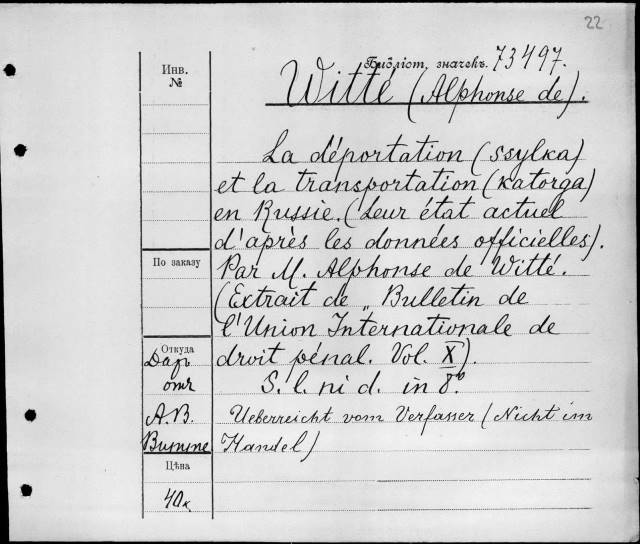 22
Инв.
№
Библіот. значекъ. 73497.
Witté (Alphonse de).
La déportation (ssylka)
et la transportation (katorga)
en Russie. (Leur état actuel
d'après les données officielles).
По заказу
Par M. Alphonse de Witté.
(Extrait de „Bulletin de
l'Union Internationale de
Откуда
droit pénal. Vol. X).
Даръ
отъ
S. l. ni d. in 8º.
А.В.
Ueberreicht vom Verfasser (Nicht im
Витте
Handel)
Цѣна
40к.